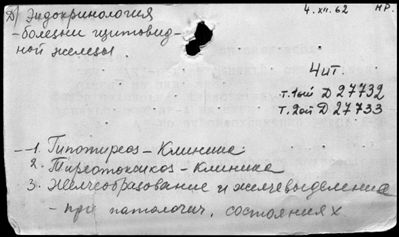 Д) Эндокринология
4.XII.62 НР.
- болезни щитовид-
ной железы
Чит.
т. 1ый Д 27732
т. 2ой Д 27733
- 1. Гипотиреоз - Клиника
2. Тиреотоксикоз - Клиника
3. Желчеобразование и желчевыделение
- при патологич. состояниях